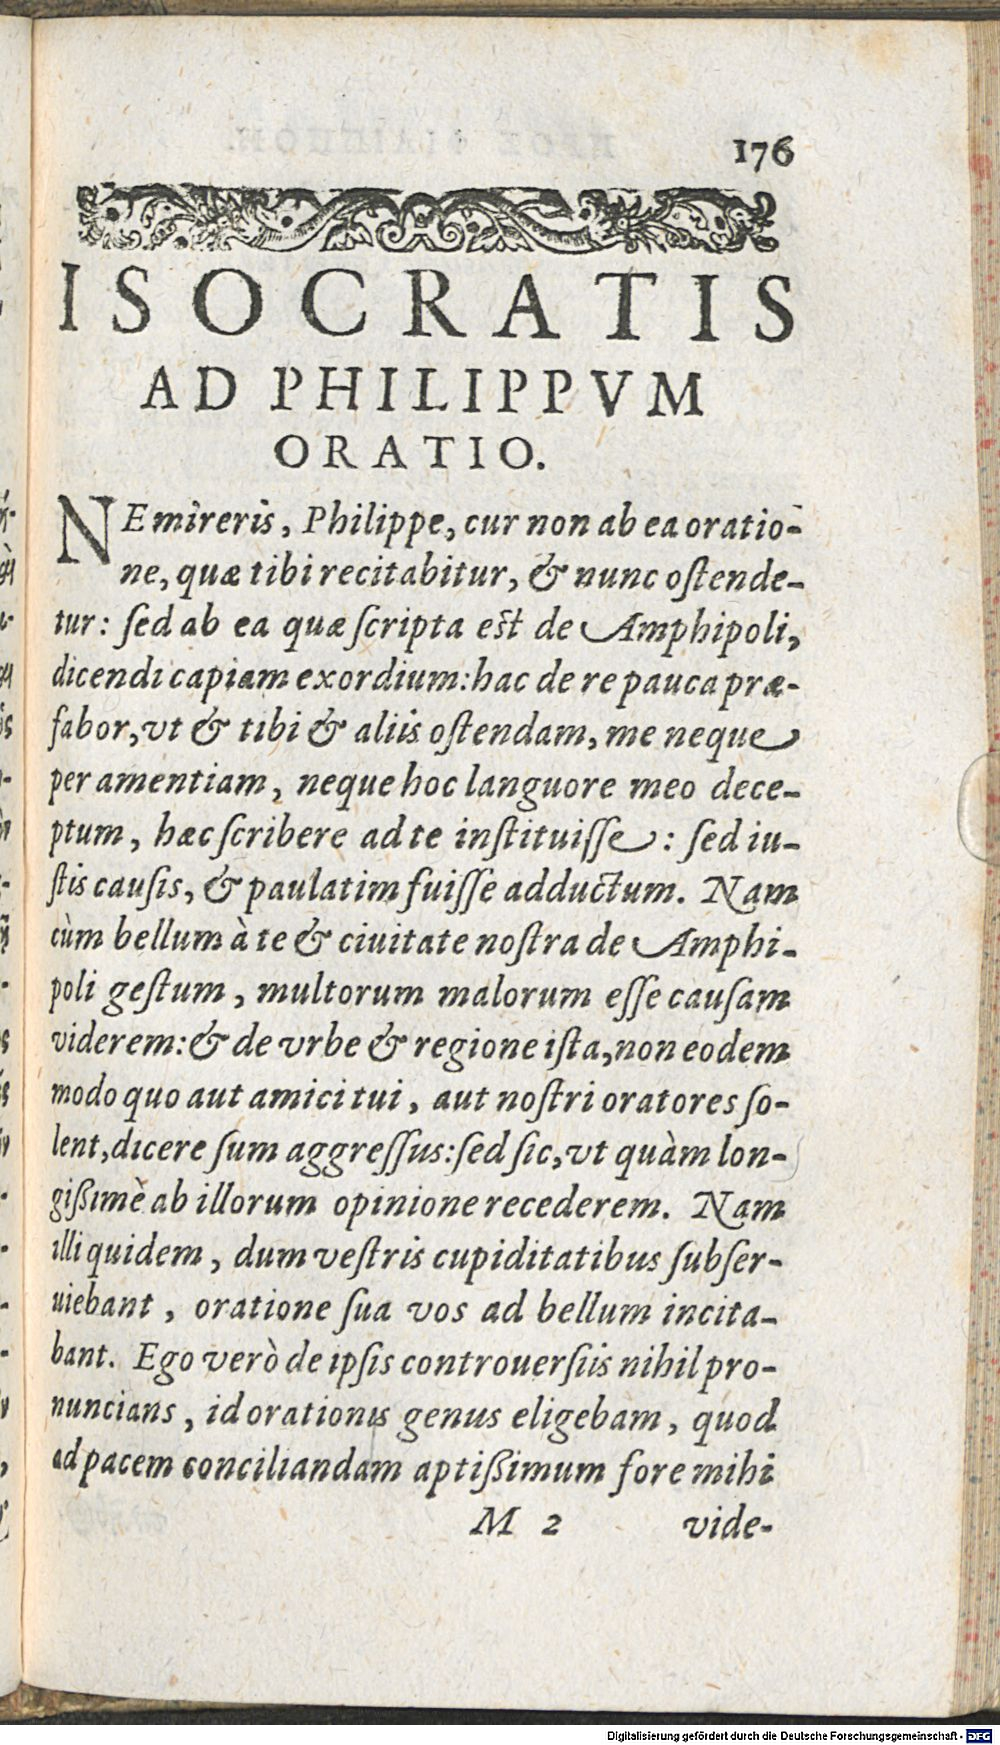 176
ISOCRATIS
AD PHILIPPVM
ORATIO.
NE mireris, Philippe, cur non ab ea oratio-
ne, quæ tibi recitabitur, & nunc oſtende-
tur: ſed ab ea quæ ſcripta eſt de Amphipoli,
dicendi capiam exordium: hac de re pauca præ-
fabor, vt & tibi & aliis oſtendam, me neque
per amentiam, neque hoc languore meo dece-
ptum, hæc ſcribere ad te inſtituiſſe: ſed iu-
ſtis cauſis, & paulatim fuiſſe adductum. Nam
cùm bellum à te & ciuitate noſtra de Amphi-
poli geſtum, multorum malorum eſſe cauſam
viderem: & de vrbe & regione iſta, non eodem
modo quo aut amici tui, aut noſtri oratores ſo-
lent, dicere ſum aggreſſus: ſed ſic, vt quàm lon-
gißimè ab illorum opinione recederem. Nam
illi quidem, dum veſtris cupiditatibus ſubſer-
uiebant, oratione ſua vos ad bellum incita-
bant. Ego verò de ipſis controuerſiis nihil pro-
nuncians, id orationis genus eligebam, quod
ad pacem conciliandam aptißimum fore mihi
M 2 vide-
Digitalisierung gefördert durch die Deutsche Forschungsgemeinschaft - DFG